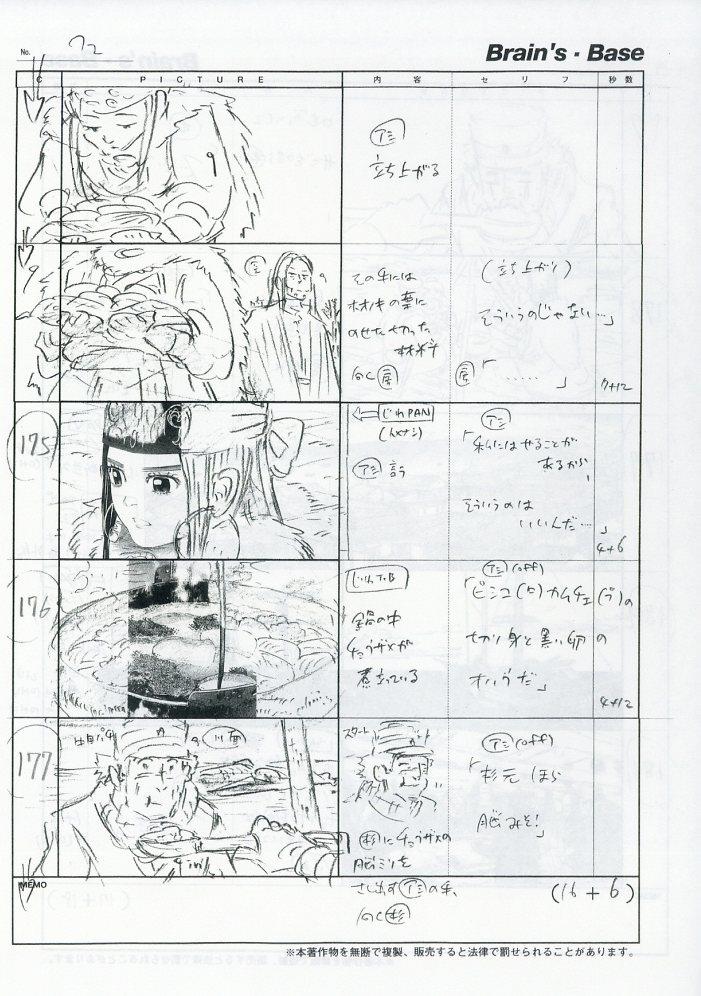 No. 72
Brain's・Base
C PICTURE 内容 セリフ 秒数
アシ
立ち上がる
その手には
ホオノキの葉に
のせた切った
(立ち上がり)
そういうのじゃない…」
「……」
7+12
175
じわPAN
アシ 言う
アシ
「私にはやることが
あるから
そういうのは
いいんだ…」
4+6
176
じわT.B
鍋の中
チョウザメが
煮立っている
アシ(off)
切り身と黒い卵の
オハウだ」
4+12
177
川面
スタート
杉にチョウザメの
脳ミソを
アシ(off)
「杉元 ほら
脳みそ!」
MEMO
さし出すアシの手、
向く杉
(16+6)
※本著作物を無断で複製、販売すると法律で罰せられることがあります。